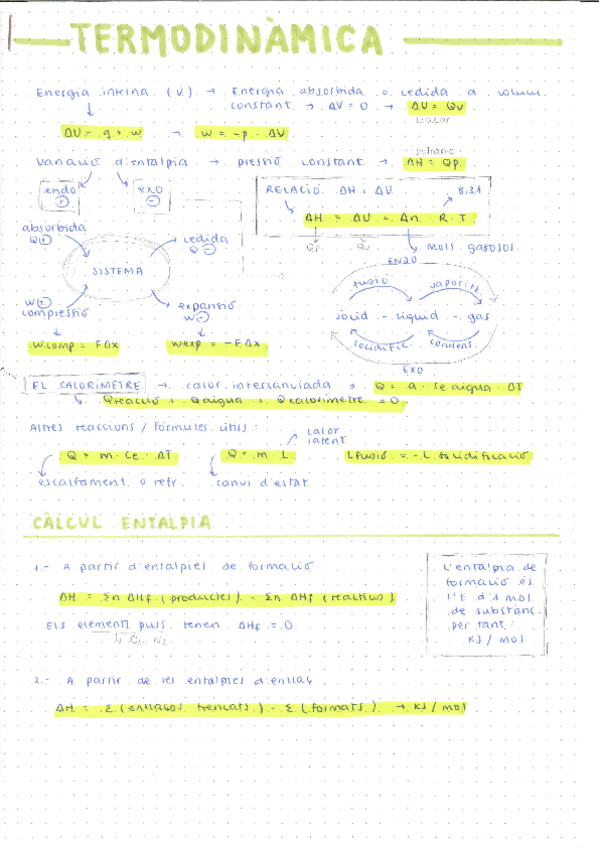 TERMODINÀMICA
Energia interna (U) → Energia absorbida o cedida a volum
constant → ΔV = 0 → ΔU = Qv
ΔU = q + w → w = -p · ΔV
Variació d'entalpia → pressió constant → ΔH = Qp
endo +
exo -
RELACIÓ ΔH i ΔU
8,31
ΔH = ΔU + Δn · R · T
Qp Qv mols gasosos
absorbida
Q +
cedida
Q -
SISTEMA
W +
compressió
expansió
W -
Wcomp = FΔx
Wexp = -FΔx
ENDO
fusió vaporitz.
sòlid - líquid - gas
solidific. condens.
EXO
EL CALORÍMETRE → calor intercanviada →
Qreacció + Qaigua + Qcalorímetre = 0
Altres reaccions / fórmules útils:
calor
latent
Q = m · Ce · ΔT
Q = m · L
Lfusió = -L solidificació
escalfament o refr.
canvi d'estat
CÀLCUL ENTALPIA
1.- A partir d'entalpies de formació
ΔH = Σn ΔHf (productes) - Σn ΔHf (reactius)
Els elements purs tenen ΔHf = 0
L'entalpia de
formació és
l'E d'1 mol
de substànc.
per tant:
KJ / mol
2.- A partir de les entalpies d'enllaç
ΔH = Σ (enllaços trencats) - Σ (formats) → KJ / mol